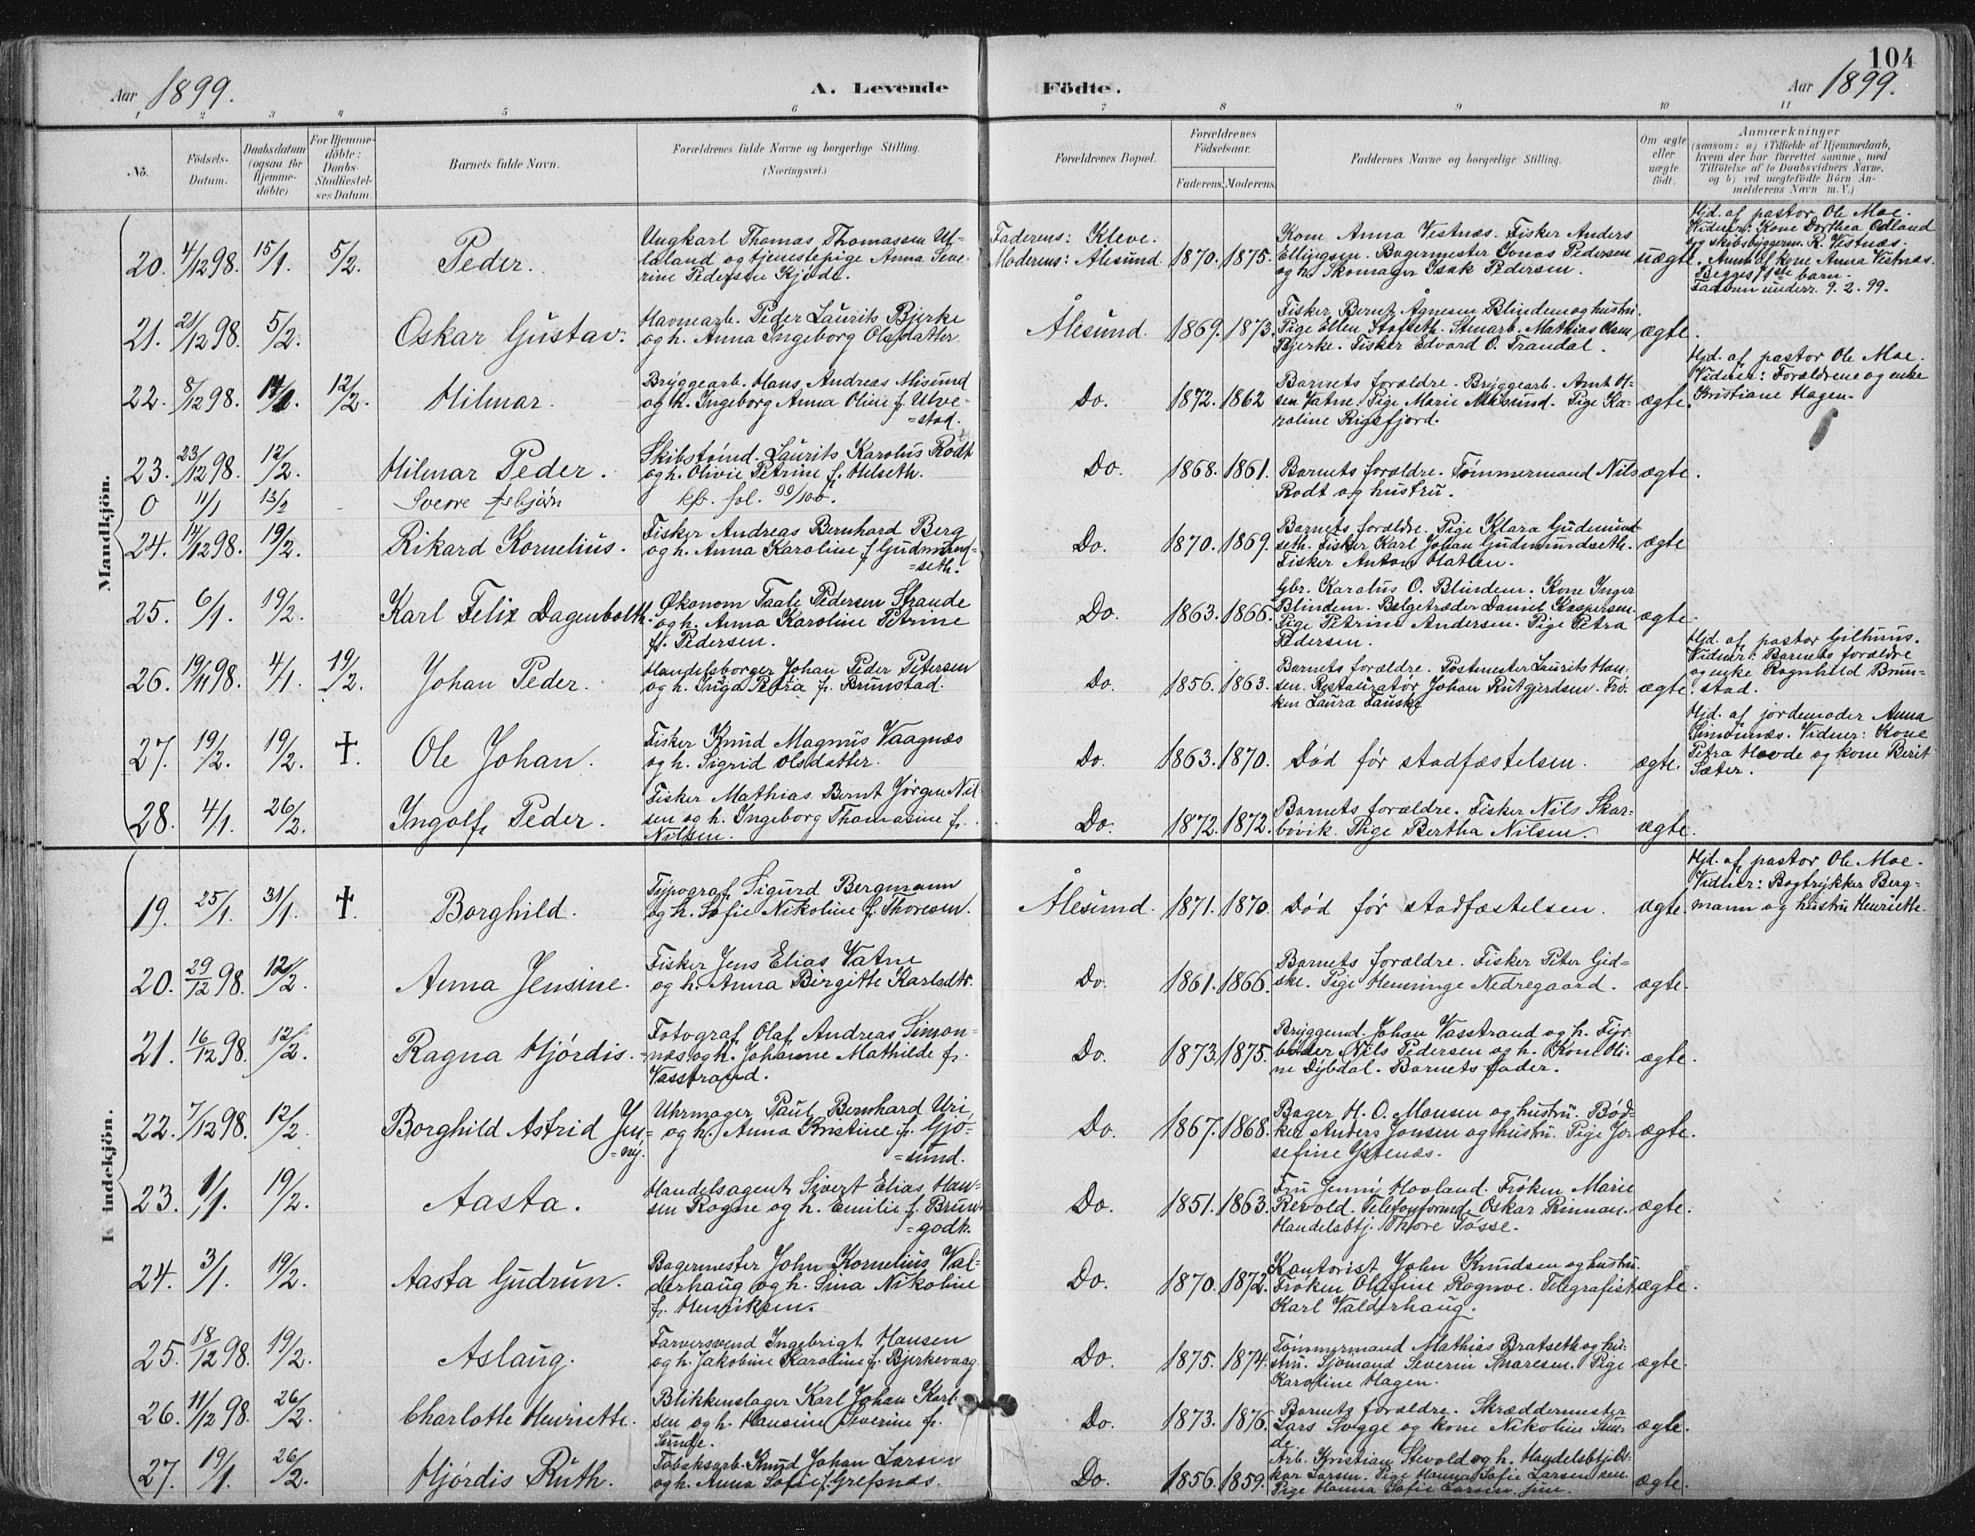 104
Aar 1899.
A. Levende Födte.
Aar 1899.
1 2 3 4 5 6 7 8 9 10 11
No.
Födsels-
Datum.
Daabsdatum
(ogsaa for
Hjemme-
döbte).
For Hjemme-
döbte:
Daabs-
Stadfæstel-
ses Datum.
Barnets fulde Navn.
Forældrenes fulde Navne og borgerlige Stilling.
(Næringsvei.)
Forældrenes Bopæl.
Forældrenes
Födselsaar.
Faderens. Moderens.
Faddernes Navne og borgerlige Stilling.
Om ægte
eller
uægte
födt.
Anmærkninger
(saasom: a) i Tilfælde af Hjemmedaab,
hvem der har forrettet samme, med
Tilföielse af to Daabsvidners Navne,
og b) ved uægtefödte Börn An-
melderens Navn m. V.)
Mandkjön.
20. 4/12 98. 15/1. 5/2. Peder.
Ungkarl Thomas Thomassen
og tjenestepige Anna Seve-
rine Pedersen Kjøde.
Faderens: Kleve.
Moderens: Ålesund.
1870. 1875.
Kone Anna Vestnæs. Fisker Anders
Ellingsen. Bagermester Jonas Pedersen
og h. Skomager Isak Pedersen.
uægte
Hjd. af pastor Ole Moe.
Vidner: Kone Dorthea Ødland
og skibsbyggerm. R. Vestnæs.
Anm. af kone Anna Vestnæs.
Begges 1ste barn.
Faderen underr. 9. 2. 99.
21. 21/12 98. 5/2. Oskar Gustav.
Havnearb. Peder Laurits Bjerke
og h. Anna Ingeborg Olsdatter.
Ålesund. 1869. 1873.
Fisker Bernt Ågnesen Blindem og hustru
Pige Ellen Stofseth. Stenarb. Mathias Olsen
Bjerke. Fisker Edvard O. Trandal.
ægte.
22. 8/12 98. 12/2. Hilmar.
Bryggearb. Hans Andreas Misund
og h. Ingeborg Anna Oline f. Ulve-
=stad.
Do. 1872. 1862
Barnets forældre. Bryggearb. Amt H-
sen Vatne. Pige Marie Misund. Pige Ka-
roline Rigsfjord.
ægte.
Hjd. af pastor Ole Moe.
Vidner: Forældrene og enke
Kristiane Hagen.
23. 23/12 98. 12/2. Hilmar Peder.
Skibstømd. Laurits Karolus Rodt
og h. Olivie Petrine f. Helseth.
Do. 1868. 1861.
Barnets forældre. Tømmermand Nils
Rodt og hustru.
ægte.
0 11/1 13/2 - Sverre Asbjørn kfr. fol. 99/100.
24. 14/12 98. 19/2. Rikard Kornelius.
Fisker Andreas Bernhard Berg
og h. Anna Karoline f. Gudmund-
=seth.
Do. 1870. 1869.
Barnets forældre. Pige Klara Gudmund
seth. Fisker Karl Johan Gudmundseth.
Fisker Anton Hatlen.
ægte
25. 6/1. 19/2. Karl Felix Dagenbolth.
Økonom Taale Pedersen Strande
og h. Anna Karoline Petrine
f. Pedersen.
Do. 1863. 1866.
Gbr. Karolus O. Blindem. Kone Inger
Blindem. Bælgetræder Daniel Kaspersen
Pige Petrine Andersen. Pige Petra
Pedersen.
ægte.
26. 19/11 98. 4/1. 19/2. Johan Peder.
Handelsborger Johan Peder Petersen
og h. Inga Petra f. Brunstad.
Do. 1856. 1863.
Barnets forældre. Postmester Laurits Han-
sen. Restauratør Johan Rutgerdsen. Frø-
ken Laura Fauske
ægte.
Hjd. af pastor Gilhuus.
Vidner: Barnets forældre
og enke Ragnhild Brun-
stad.
27. 19/2. 19/2. †. Ole Johan.
Fisker Knud Magnus Vaagnæs
og h. Sigrid Olsdatter.
Do. 1863. 1870. Død før stadfæstelsen. ægte.
Hjd. af jordemoder Anna
Simonnæs. Vidner: Kone
Petra Hovde og kone Berit
Sæter.
28. 4/1. 26/2. Ingolf Peder.
Fisker Mathias Bernt Jørgen Nil-
sen og h. Ingeborg Thomasine f.
Nilsen.
Do. 1872. 1872.
Barnets forældre. Fisker Nils Skar-
bøvik. Pige Bertha Nilsen.
ægte.
Kvindekjön.
19. 25/1. 31/1. †. Borghild.
Typograf Sigurd Bergmann
og h. Sofie Nikoline f. Thoresen.
Ålesund. 1871. 1870. Død før stadfæstelsen. ægte.
Hjd. af pastor Ole Moe.
Vidner: Bogtrykker Berg-
mann og hustru Henriette.
20. 29/12 98. 12/2. Anna Jensine.
Fisker Jens Elias Vatne
og h. Anna Birgitte Karlsdtr.
Do. 1861. 1866.
Barnets forældre. Fisker Peter Gid-
ske. Pige Henninge Nedregaard.
ægte.
21. 16/12 98. 12/2. Ragna Hjørdis.
Fotograf Olaf Andreas Simon-
næs og h. Johanne Mathilde f.
Vasstrand.
Do. 1873. 1875.
Bryggemd. Johan Vasstrand og h. Fyr-
bøder Nils Pedersen og h. Kone Oli-
ne Dybdal. Barnets fader.
ægte.
22. 7/12 98. 12/2. Borghild Astrid Jen-
=ny.
Uhrmager Paul Bernhard Uri,
og h. Anna Kristine f. Gjø-
=sund.
Do. 1867. 1868.
Bager H. O. Monsen og hustru. Bød-
ker Anders Jonsen og hustru. Pige Jo-
sefine Ystenæs.
ægte.
23. 1/1. 19/2. Aasta.
Handelsagent Sivert Elias Han-
sen Rogne og h. Emilie f. Brun-
=godt.
Do. 1851. 1863.
Fru Jenny Hovland. Frøken Marie
Revold. Telefonformd. Oskar Rinnan.
Handelsbtj. Thore Tøsse.
ægte.
24. 3/1. 19/2. Aasta Gudrun.
Bagermester John Kornelius Val-
derhaug og h. Sina Nikoline
f. Henriksen.
Do. 1870. 1872.
Kontorist John Knudsen og hustru.
Frøken Olefine Rognve. Telegrafist
Karl Valderhaug.
ægte.
25. 18/12 98. 19/2. Aslaug.
Farversvend Ingebrigt Hansen
og h. Jakobine Karoline f. Bjerkevaag.
Do. 1875. 1874.
Tømmermand Mathias Bratseth og hu-
stru. Sjømand Severin Snaresen. Pige
Karoline Hagen.
ægte.
26. 11/12 98. 26/2. Charlotte Henriette.
Blikkenslager Karl Johan Karl-
sen og h. Hansine Severine f.
Sunde.
Do. 1873. 1876.
Barnets forældre. Skræddermester
Lars Svegge og kone Nikoline Sun-
de.
ægte.
27. 19/1. 26/2. Hjørdis Ruth.
Tobaksarb. Knud Johan Larsen
og h. Anna Sofie f. Grepnæs.
Do. 1856. 1859.
Arb. Kristian Stevold og h. Handelsbtj.
Larsen. Pige Hanna Sofie Larsen sen
Pige Hanna Sofie Larsen jun.
ægte.